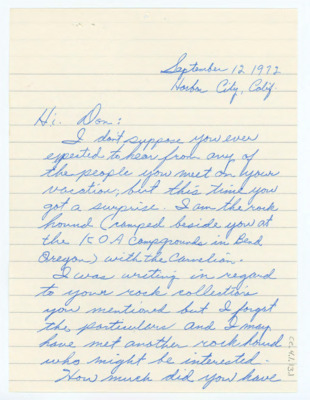 September 12 1972
Harbor City, Calif.
Hi. Don:
I don't suppose you ever
expected to hear from any of
the people you met on your
vacation, but this time you
got a surprise. I am the rock
hound (camped beside you at
the K.O.A Campgrounds in Bend
Oregon) with the Carnelian.
I was writing in regard
to your rock collections
you mentioned but I forget
the particulars and I may
have met another rockhound
who might be interested -
How much did you have